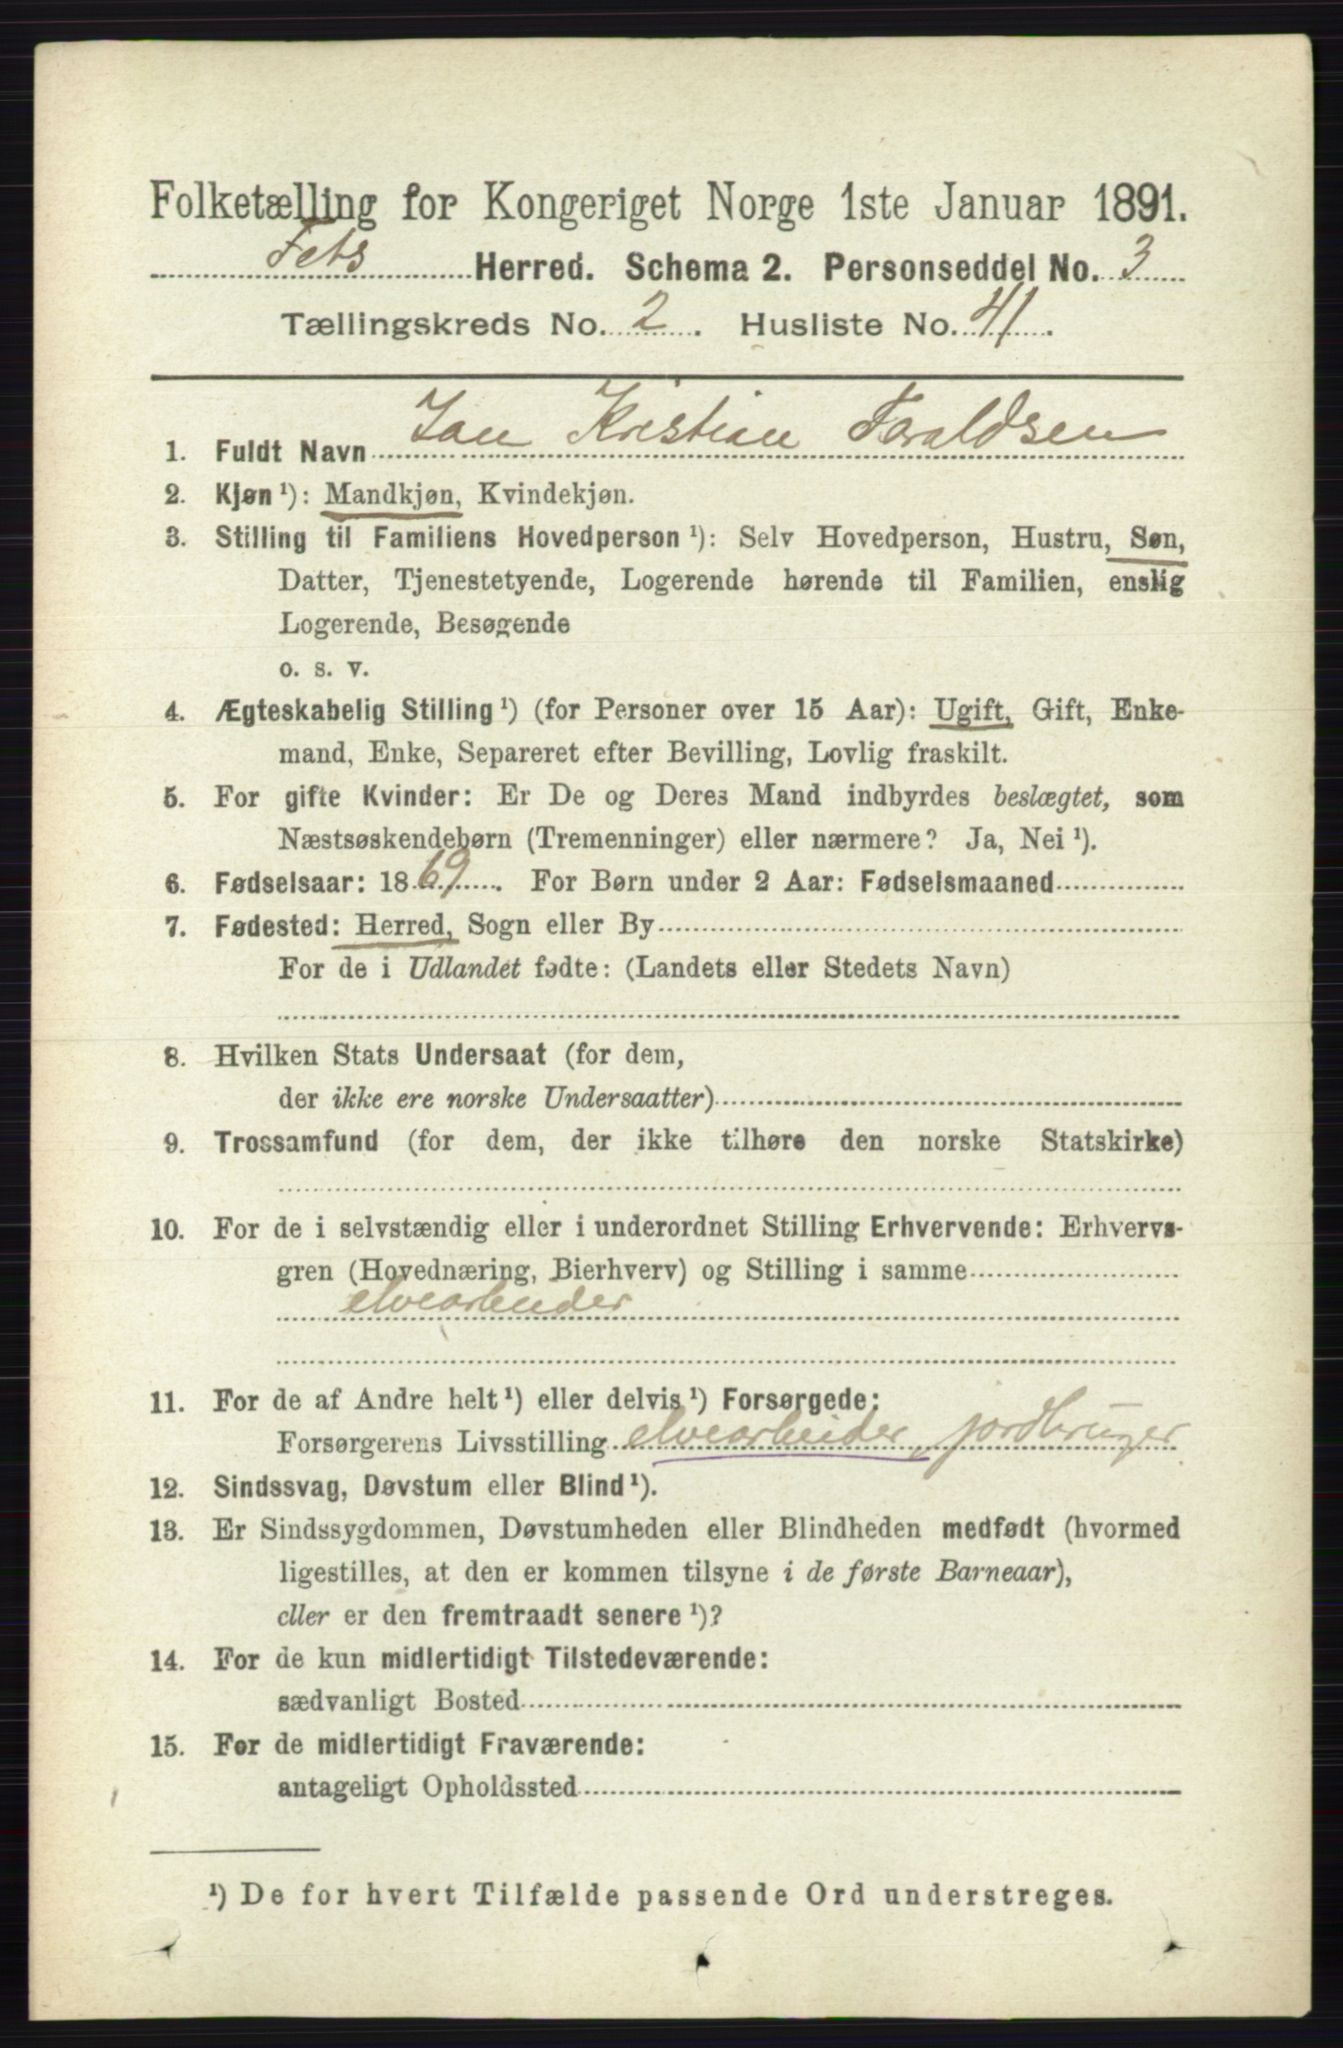 Folketælling for Kongeriget Norge 1ste Januar 1891.
Fets Herred. Schema 2. Personseddel No. 3
Tællingskreds No. 2. Husliste No. 41.
1. Fuldt Navn Jan Kristian Toraldsen
2. Kjøn ¹): Mandkjøn, Kvindekjøn.
3. Stilling til Familiens Hovedperson ¹): Selv Hovedperson, Hustru, Søn,
Datter, Tjenestetyende, Logerende hørende til Familien, enslig
Logerende, Besøgende
o. s. v.
4. Ægteskabelig Stilling ¹) (for Personer over 15 Aar): Ugift, Gift, Enke-
mand, Enke, Separeret efter Bevilling, Lovlig fraskilt.
5. For gifte Kvinder: Er De og Deres Mand indbyrdes beslægtet, som
Næstsøskendebørn (Tremenninger) eller nærmere? Ja, Nei ¹).
6. Fødselsaar: 1869. For Børn under 2 Aar: Fødselsmaaned
7. Fødested: Herred, Sogn eller By
For de i Udlandet fødte: (Landets eller Stedets Navn)
8. Hvilken Stats Undersaat (for dem,
der ikke ere norske Undersaatter)
9. Trossamfund (for dem, der ikke tilhøre den norske Statskirke)
10. For de i selvstændig eller i underordnet Stilling Erhvervende: Erhvervs-
gren (Hovednæring, Bierhverv) og Stilling i samme
elvearbeider
11. For de af Andre helt ¹) eller delvis ¹) Forsørgede:
Forsørgerens Livsstilling elvearbeider, jordbruger
12. Sindssvag, Døvstum eller Blind ¹).
13. Er Sindssygdommen, Døvstumheden eller Blindheden medfødt (hvormed
ligestilles, at den er kommen tilsyne i de første Barneaar),
eller er den fremtraadt senere ¹)?
14. For de kun midlertidigt Tilstedeværende:
sædvanligt Bosted
15. For de midlertidigt Fraværende:
antageligt Opholdssted
¹) De for hvert Tilfælde passende Ord understreges.